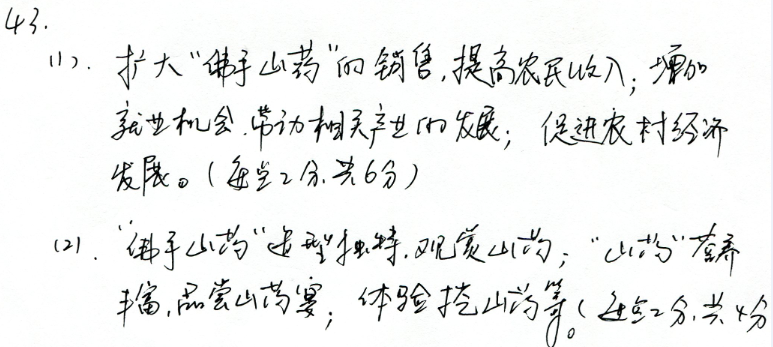 43.
(1). 扩大“佛手山药”的销售,提高农民收入; 增加
就业机会,带动相关产业的发展; 促进农村经济
发展。(每点2分,共6分)
(2). “佛手山药”造型独特,观赏山药; “山药”营养
丰富,品尝山药宴; 体验挖山药等。(每点2分,共4分